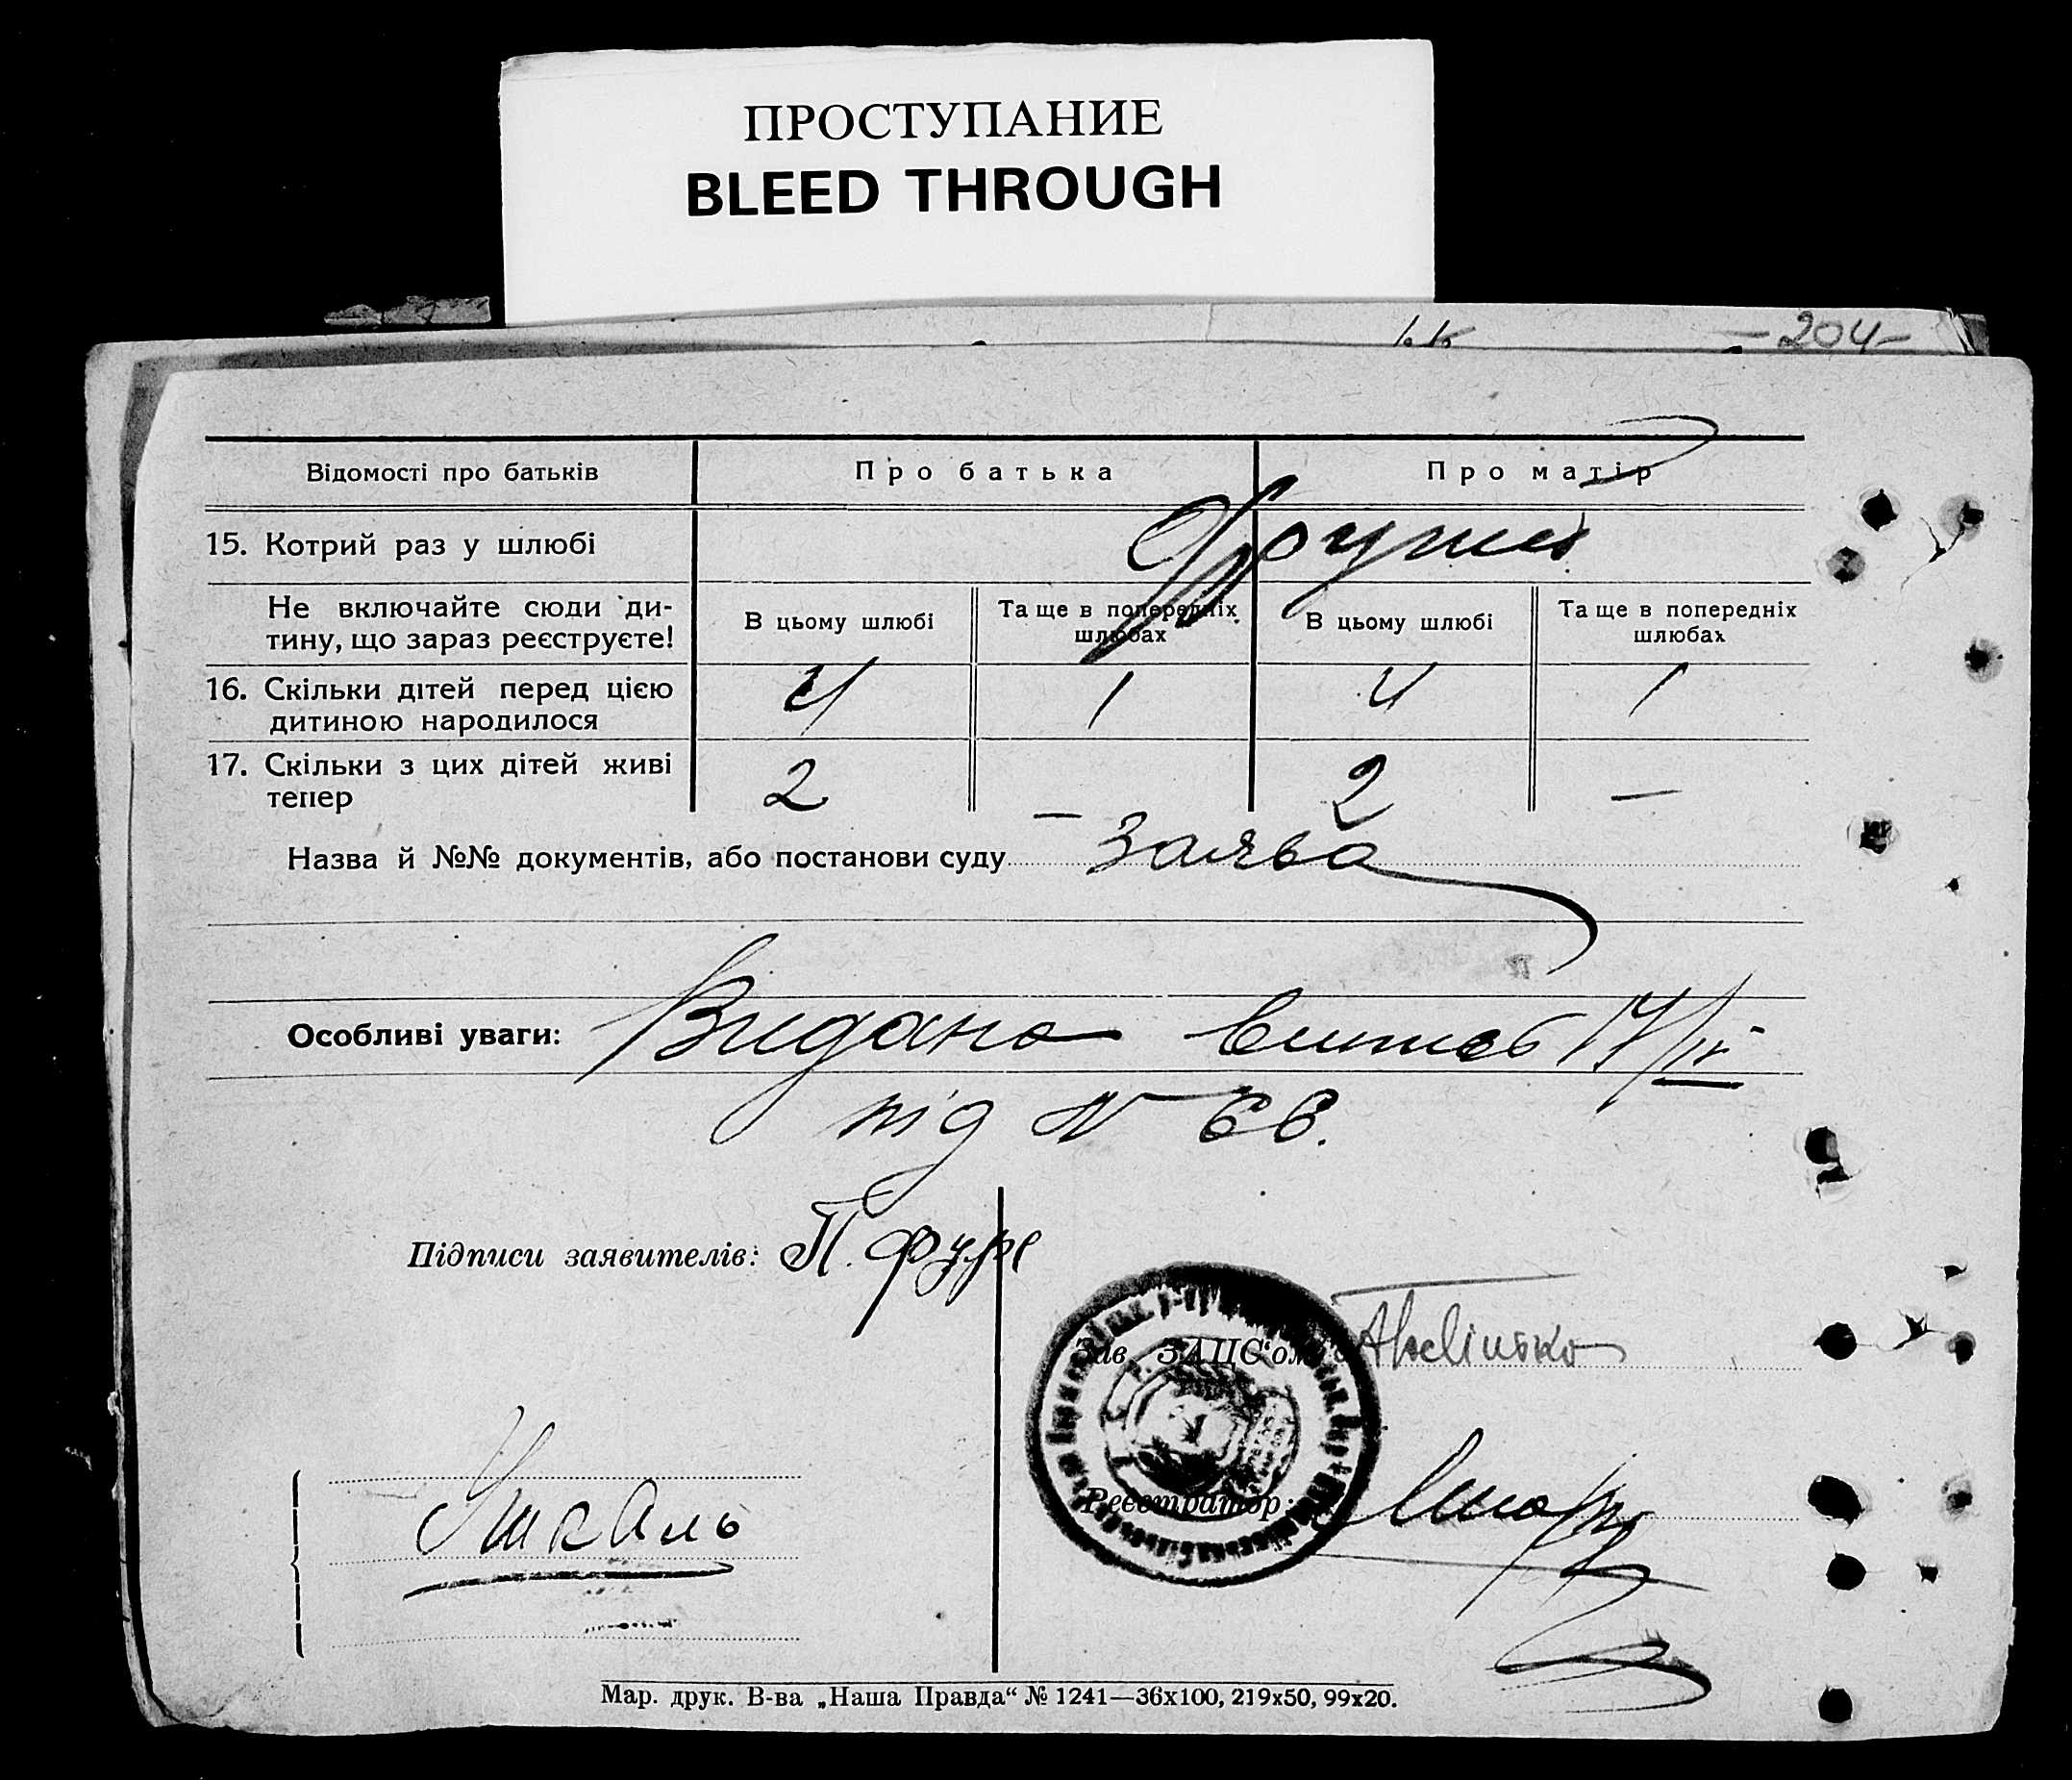 ПРОСТУПАНИЕ
BLEED THROUGH
-204-
Відомості про батьків
Про батька
Про матір
15. Котрий раз у шлюбі
Другий
Не включайте сюди ди-
тину, що зараз реєструєте!
В цьому шлюбі
Та ще в попередніх
шлюбах
В цьому шлюбі
Та ще в попередніх
шлюбах
16. Скільки дітей перед цією
дитиною народилося
4
1
4
1
17. Скільки з цих дітей живі
тепер
2
—
2
—
Назва й №№ документів, або постанови суду
Заява
Особливі уваги:
Видано витяг 17/IV
під N 66.
Підписи заявителів: П. Фурс
Зав ЗАЦС'ом
Реєстратор:
Мар. друк. В-ва „Наша Правда“ № 1241—36x100, 219x50, 99x20.